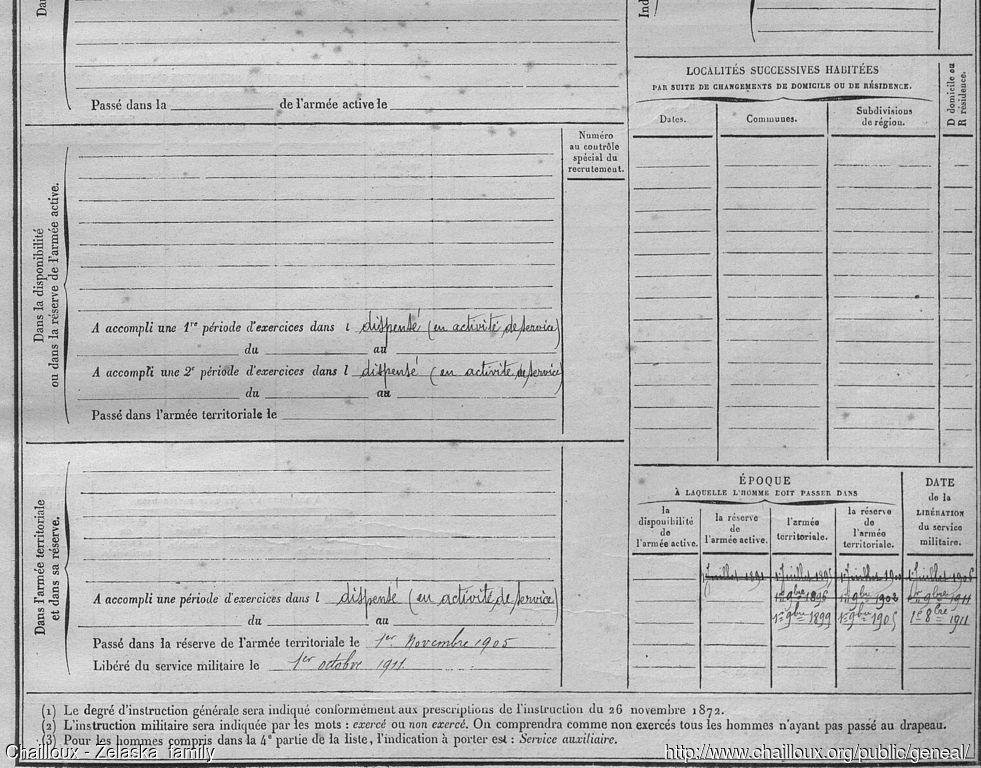 Da
Passé dans la de l'armée active le
Dans la disponibilité
ou dans la réserve de l'armée active.
Numéro
au contrôle
spécial du
recrutement.
A accompli une 1re période d'exercices dans l dispensé (en activité de service)
du au
A accompli une 2e période d'exercices dans l dispensé (en activité de service)
du au
Passé dans l'armée territoriale le
Dans l'armée territoriale
et dans sa réserve.
A accompli une période d'exercices dans l dispensé (en activité de service)
du au
Passé dans la réserve de l'armée territoriale le 1er Novembre 1905
Libéré du service militaire le 1er octobre 1911.
Ind
LOCALITÉS SUCCESSIVES HABITÉES
PAR SUITE DE CHANGEMENTS DE DOMICILE OU DE RÉSIDENCE.
D domicile ou
R résidence.
Dates.
Communes.
Subdivisions
de région.
ÉPOQUE
À LAQUELLE L'HOMME DOIT PASSER DANS
DATE
de la
LIBÉRATION
du service
militaire.
la
disponibilité
de
l'armée active.
la réserve
de
l'armée active.
l'armée
territoriale.
la réserve
de
l'armée
territoriale.
1 Juillet 1 Juillet 1 Juillet 1 Juillet
1er 9bre 1896 1er 9bre 1902 1er 9bre 1911
1er 9bre 1899 1er 9bre 1905 1er 8bre 1911
(1) Le degré d'instruction générale sera indiqué conformément aux prescriptions de l'instruction du 26 novembre 1872.
(2) L'instruction militaire sera indiquée par les mots : exercé ou non exercé. On comprendra comme non exercés tous les hommes n'ayant pas passé au drapeau.
(3) Pour les hommes compris dans la 4e partie de la liste, l'indication à porter est : Service auxiliaire.
Chailloux - Zelaska family
http://www.chailloux.org/public/geneal/